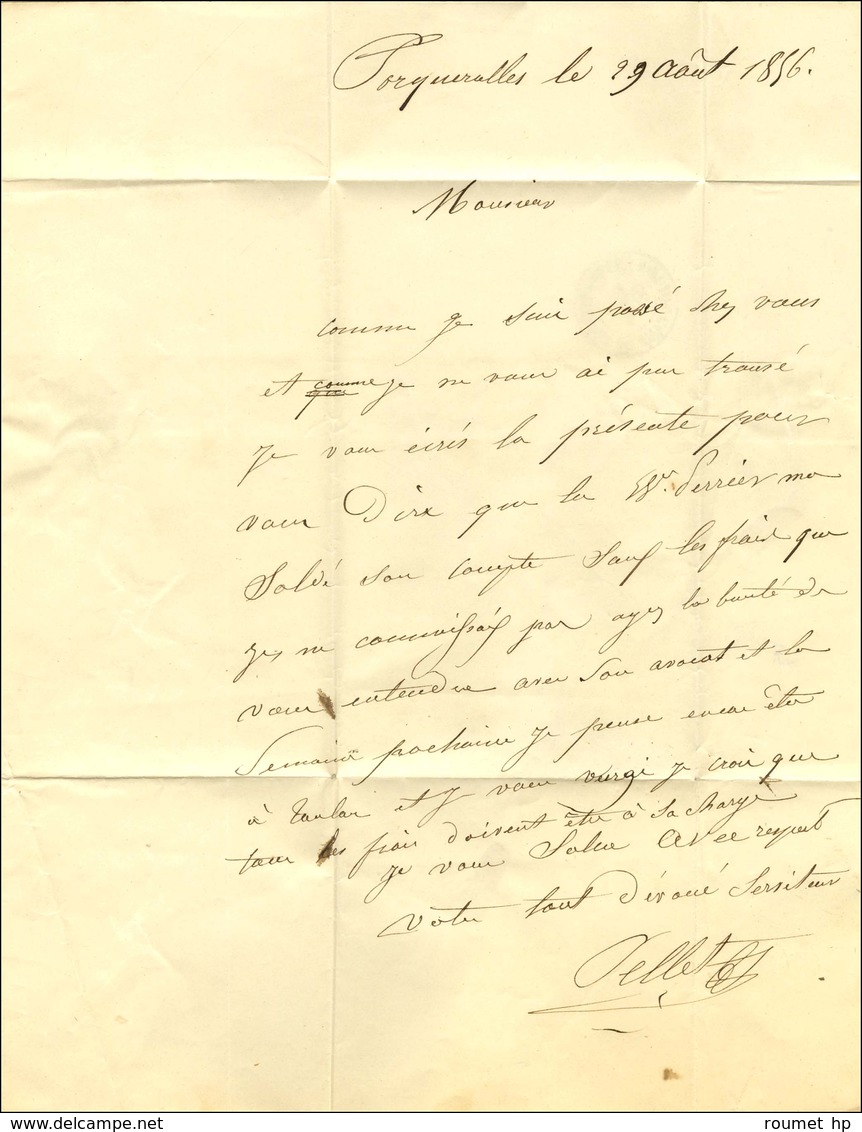 Porquerolles le 29 août 1856.
Monsieur
comme je suis passé chez vous
et comme je ne vous ai pas trouvé
je vous écris la présente pour
vous Dire que la Vve. Perrier ma
Soldé son compte Sauf les frais que
je ne connaissais pas ayez la bonté de
vous entendre avec Son avocat et la
Semaine prochaine je pense encore être
à Toulon et je vous je croir que
tous les frais doivent être à Sa charge
je vous Salue avec respect
votre tout Dévoué Serviteur
Pellet
roumet hp